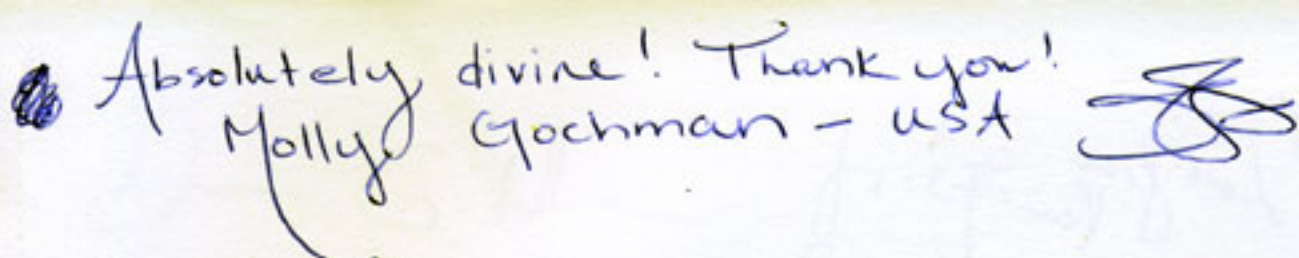 Absolutely divine! Thank you!
Molly Gochman - USA